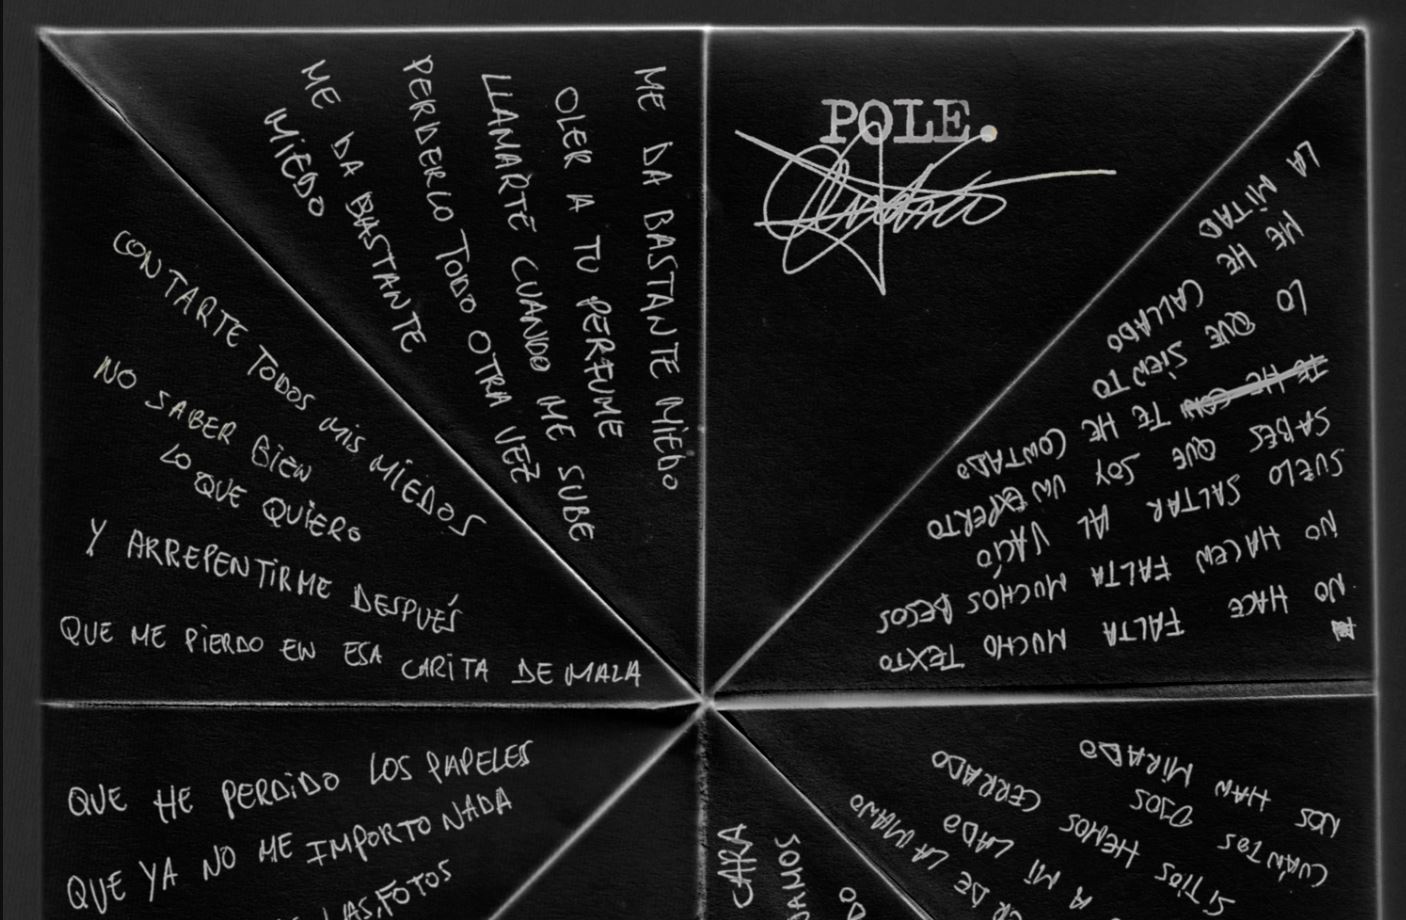 POLE.
ME DA BASTANTE MIEDO
OLER A TU PERFUME
LLAMARTE CUANDO ME SUBE
PERDERLO TODO OTRA VEZ
ME DA BASTANTE
MIEDO
CONTARTE TODOS MIS MIEDOS
NO SABER BIEN
LO QUE QUIERO
Y ARREPENTIRME DESPUÉS
QUE ME PIERDO EN ESA CARITA DE MALA
QUE HE PERDIDO LOS PAPELES
QUE YA NO ME IMPORTO NADA
LAS FOTOS
CARA
DE LA MANO
A MI LADO
SITIOS HEMOS CERRADO
CUÁNTOS OJOS
NOS HAN MIRADO
NO HACE FALTA MUCHO TEXTO
NO HACEN FALTA MUCHOS BESOS
SUELO SALTAR AL VACÍO
SABES QUE SOY UN EXPERTO
TE HE CONTADO
LO QUE SIENTO
ME HE CALLADO
LA MITAD